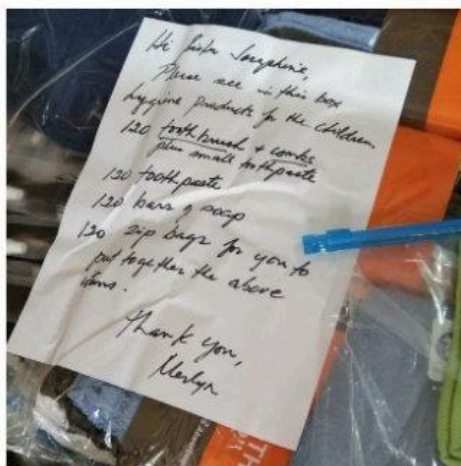 Hi Sister Josephine,
Please see in this box
hygiene products for the children
120 toothbrush + combs
plus small toothpaste
120 toothpaste
120 bars of soap
120 zip bags for you to
put together the above
items.
Thank you,
Merlyn
TH